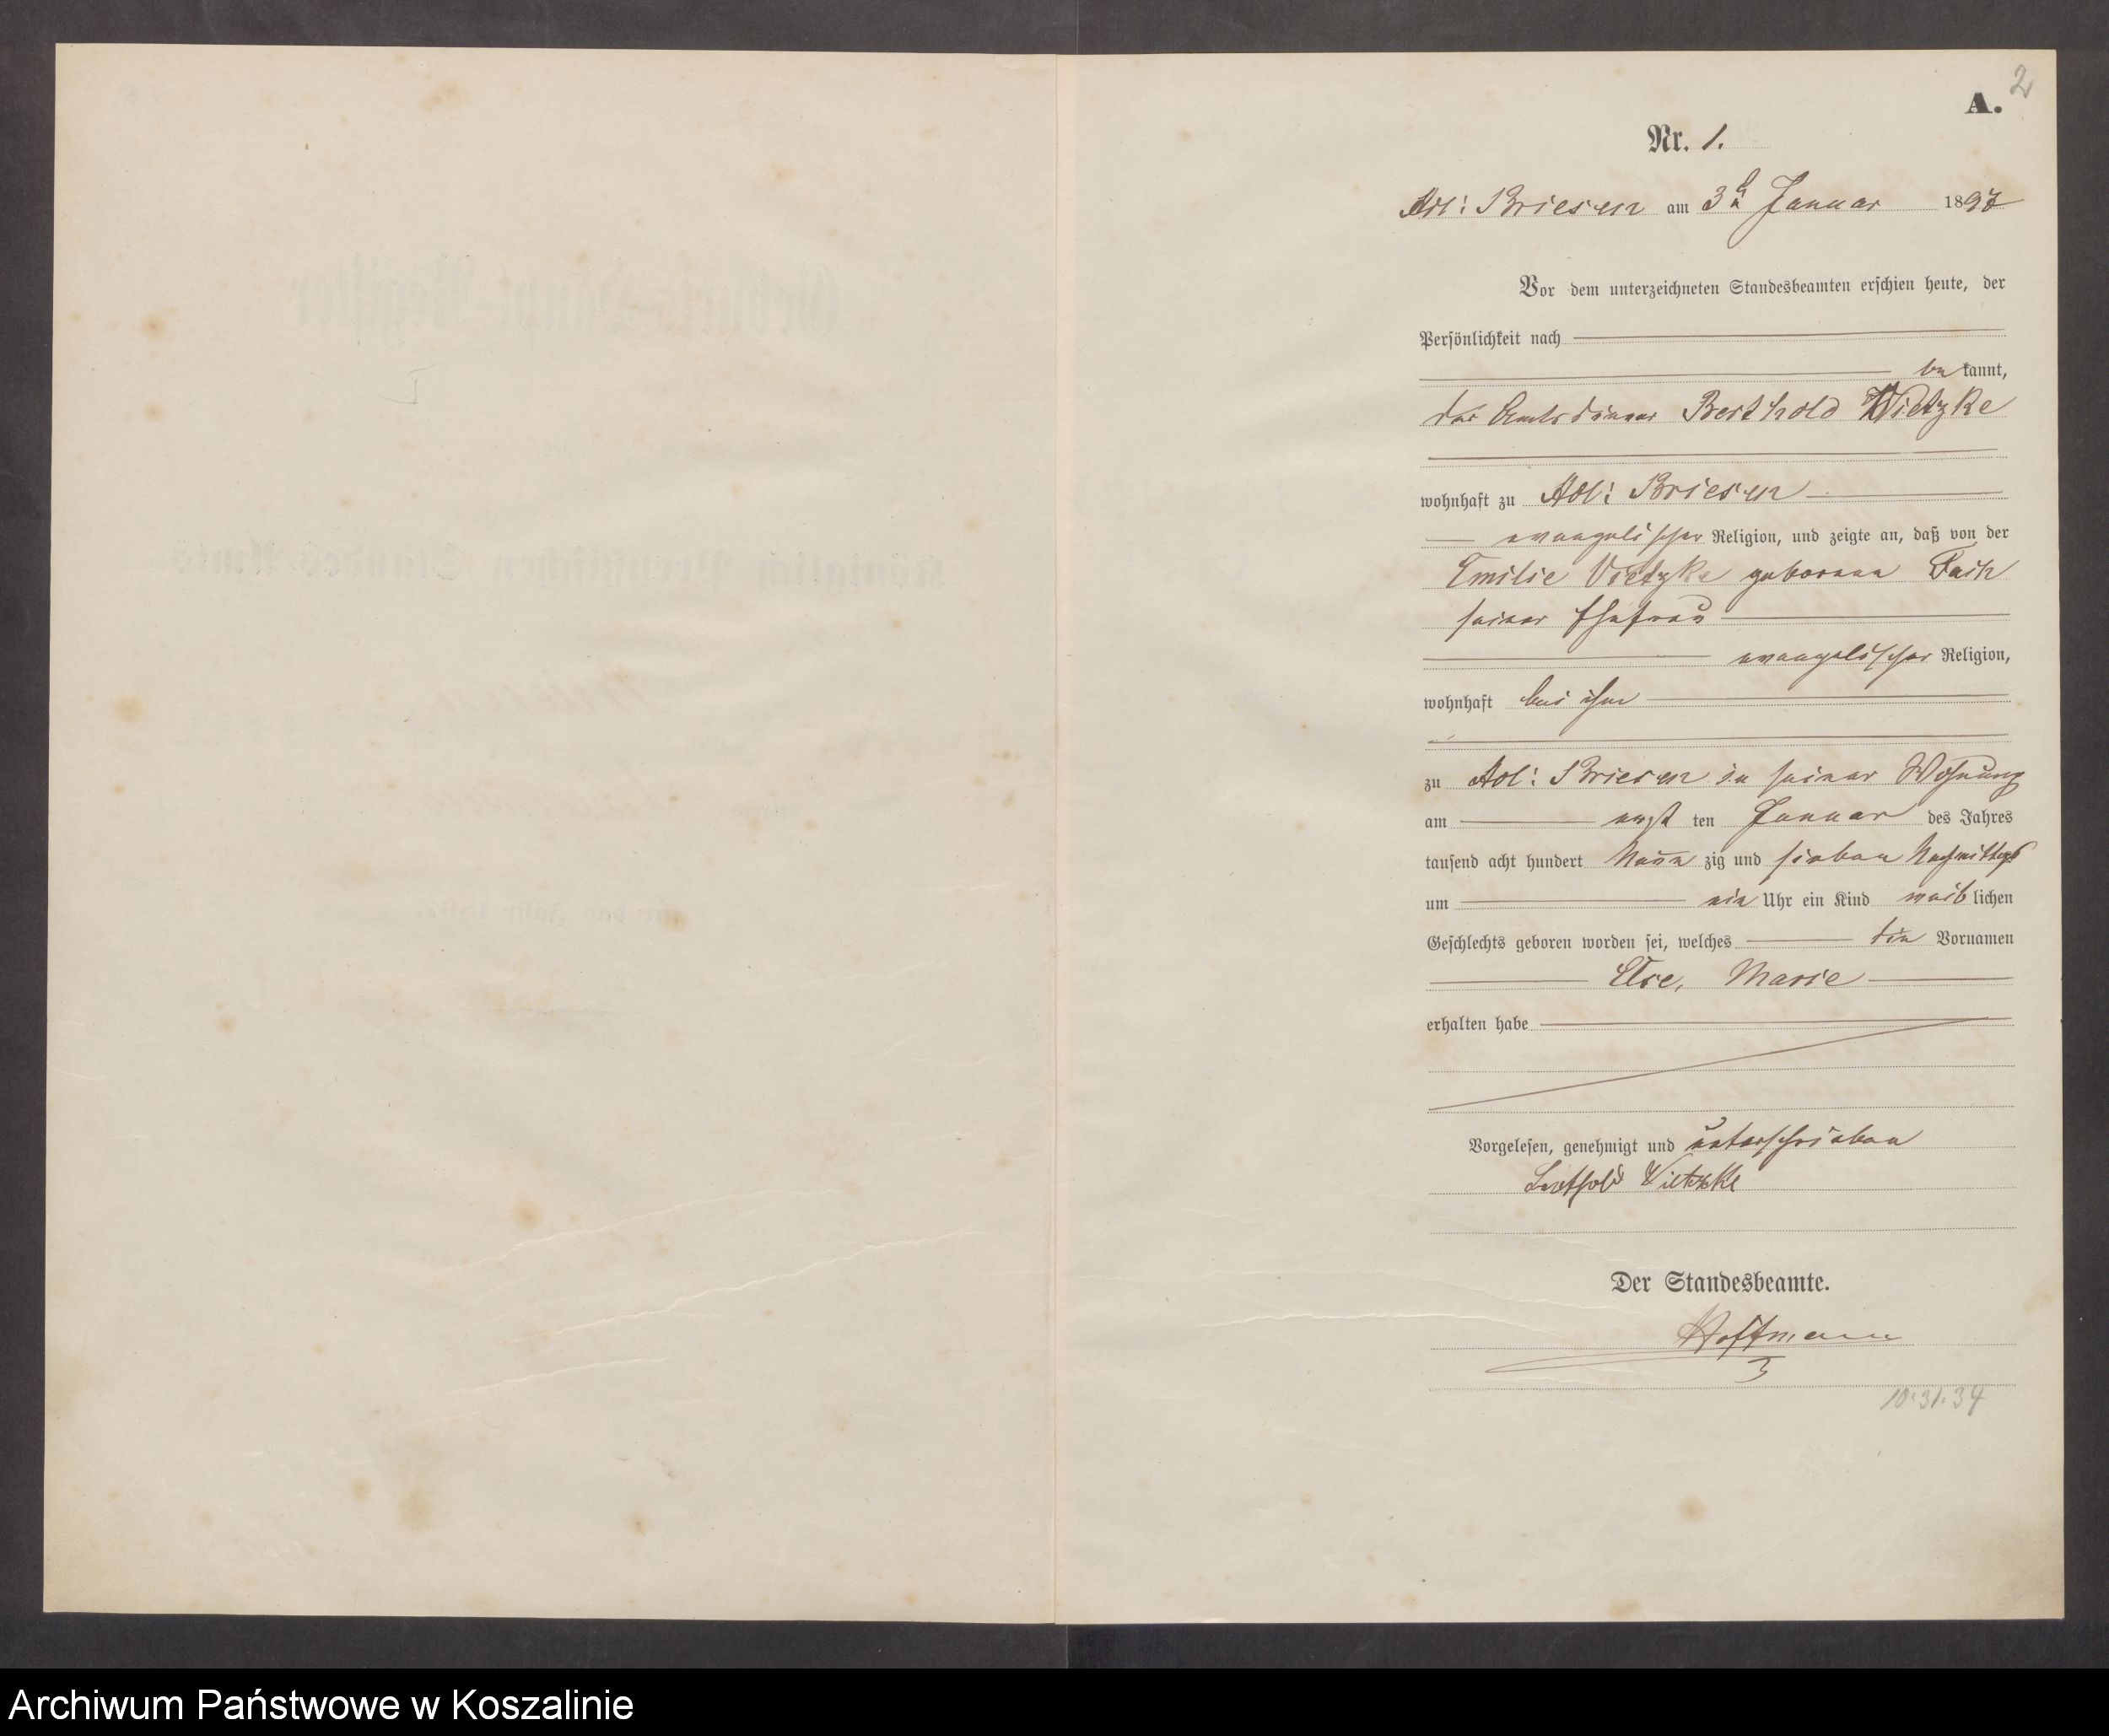 2
A.
Nr. 1.
Adl: Briesen am 3ten Januar 1897
Vor dem unterzeichneten Standesbeamten erschien heute, der
Persönlichkeit nach
be kannt,
der Amtsdiener Berthold Vietzke
wohnhaft zu Adl: Briesen
evangelischer Religion, und zeigte an, daß von der
Emilie Vietzke geborene
seiner Ehefrau
evangelischer Religion,
wohnhaft bei ihm
zu Adl: Briesen in seiner Wohnung
am erst ten Januar des Jahres
tausend acht hundert Neun zig und sieben Nachmittags
um ein Uhr ein Kind weib lichen
Geschlechts geboren worden sei, welches die Vornamen
Else, Marie
erhalten habe
Vorgelesen, genehmigt und unterschrieben
Berthold Vietzke
Der Standesbeamte.
Hoffmann
10.31.34
Archiwum Państwowe w Koszalinie